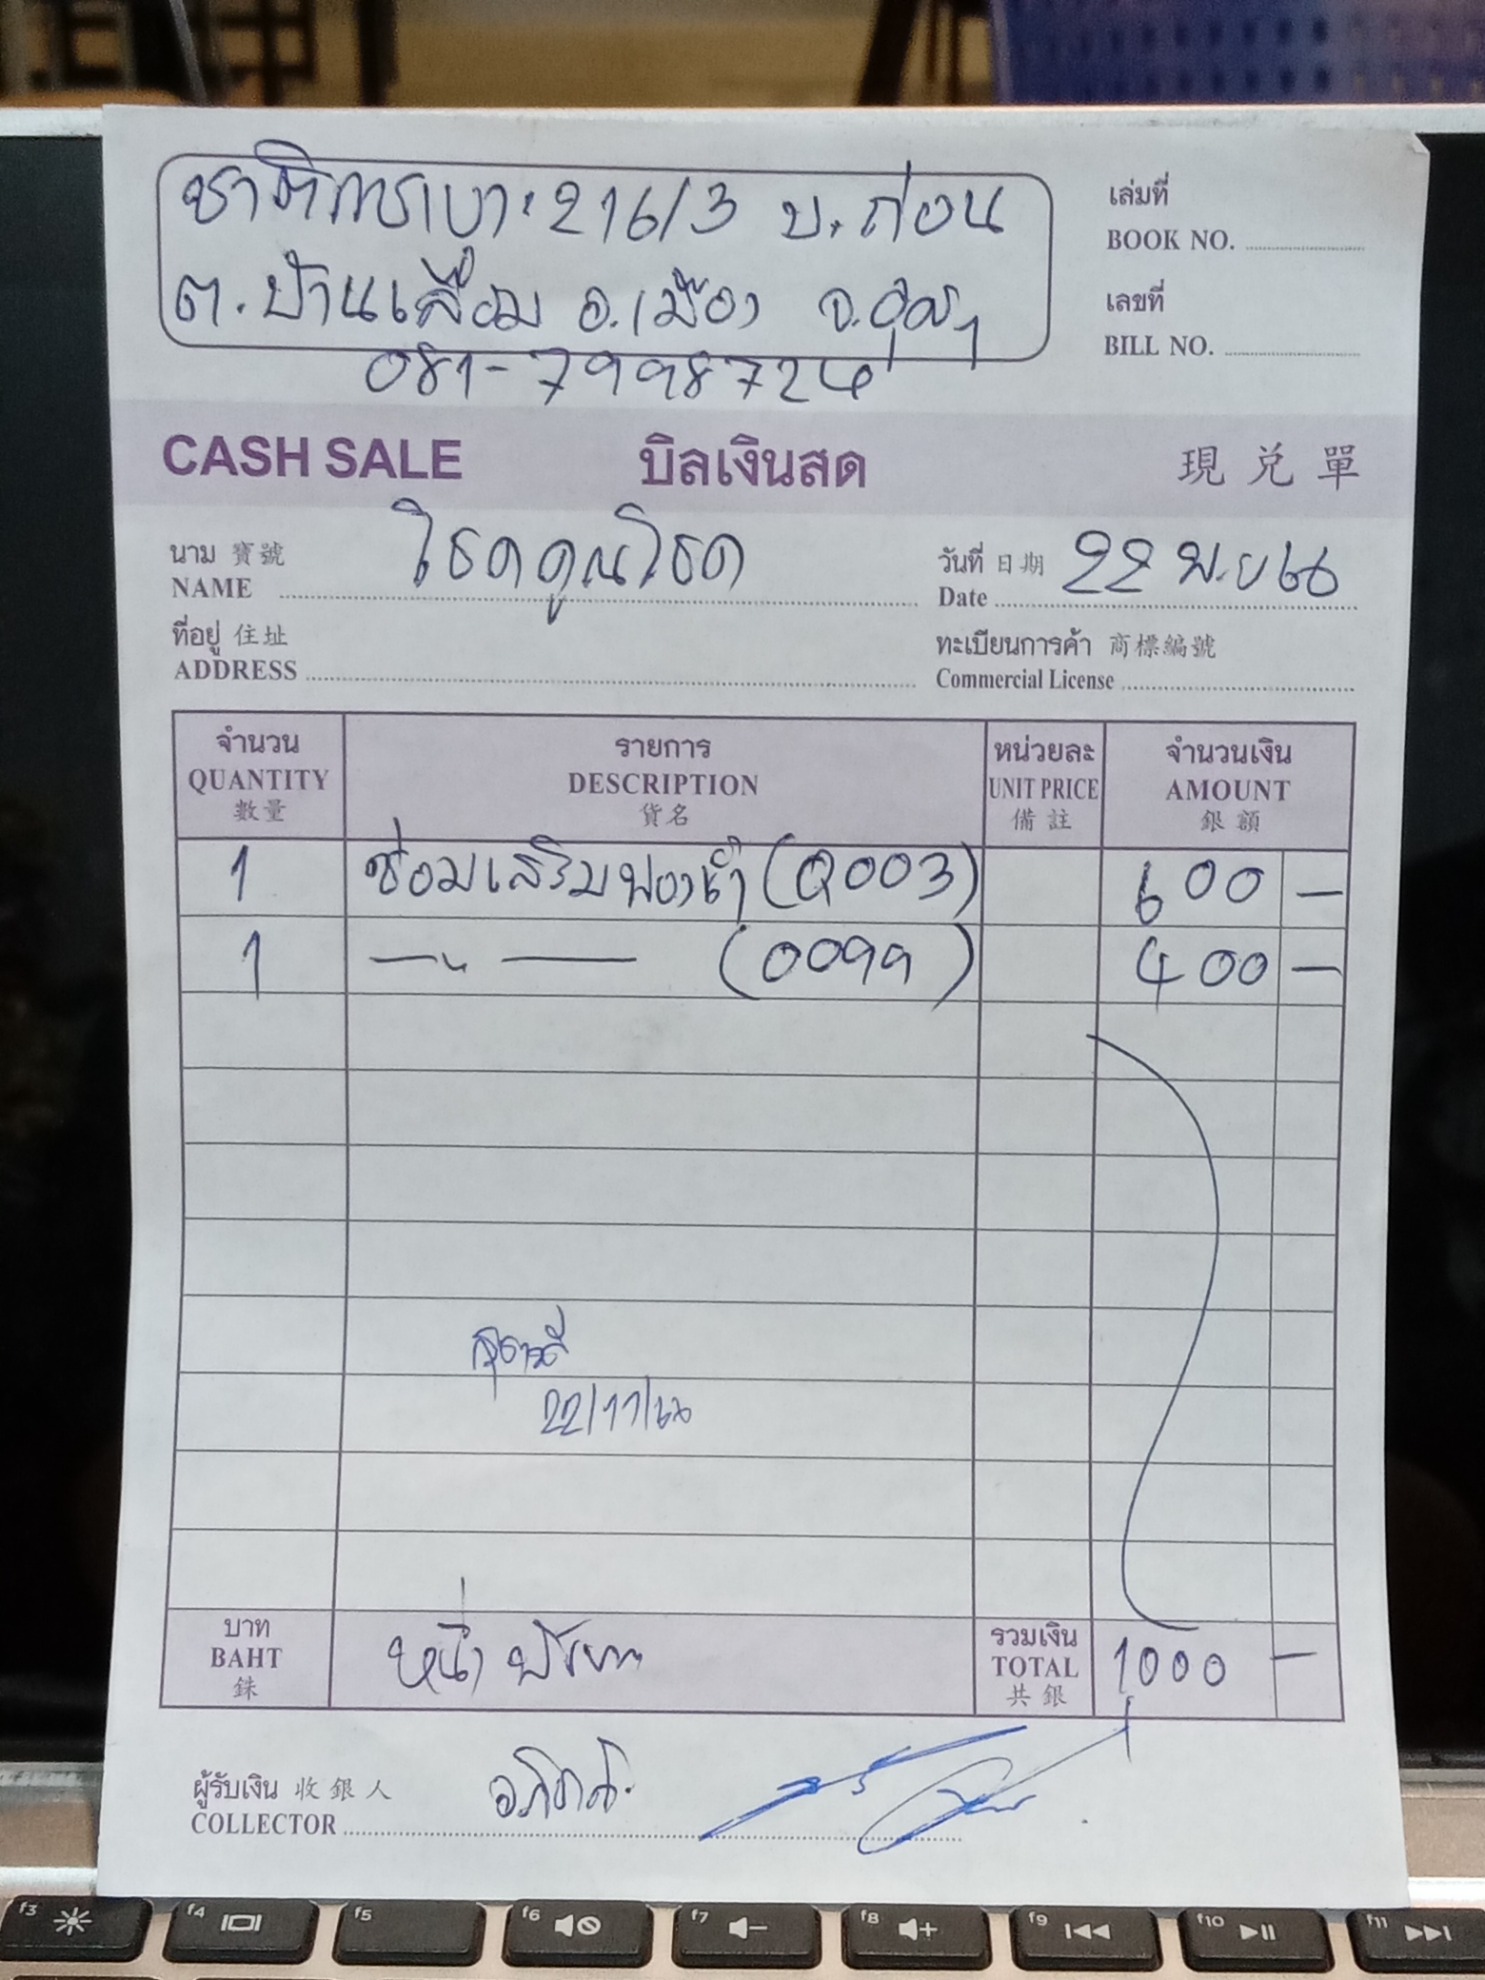 ชาติการเบาะ 216/3 บ.ถ่อน
ต.บ้านเลื่อม อ.เมือง จ.อุดรฯ
081-7998724
เล่มที่
BOOK NO.
เลขที่
BILL NO.
CASH SALE บิลเงินสด 現兌單
นาม 寶號 NAME โชคคูณโชค
วันที่ 日期 Date 22 พ.ย 66
ที่อยู่ 住址
ADDRESS
ทะเบียนการค้า 商標編號
Commercial License
จำนวน รายการ หน่วยละ จำนวนเงิน
QUANTITY DESCRIPTION UNIT PRICE AMOUNT
數量 貨名 備註 銀額
1 ซ่อมเสริมฟองน้ำ (Q003) 600 —
1 —"— (0099) 400 —
22/11/66
บาท BAHT 銖 หนึ่งพันบาท
รวมเงิน TOTAL 共銀 1000 —
ผู้รับเงิน 收銀人
COLLECTOR
f3 f4 f5 f6 f7 f8 f9 f10 f11